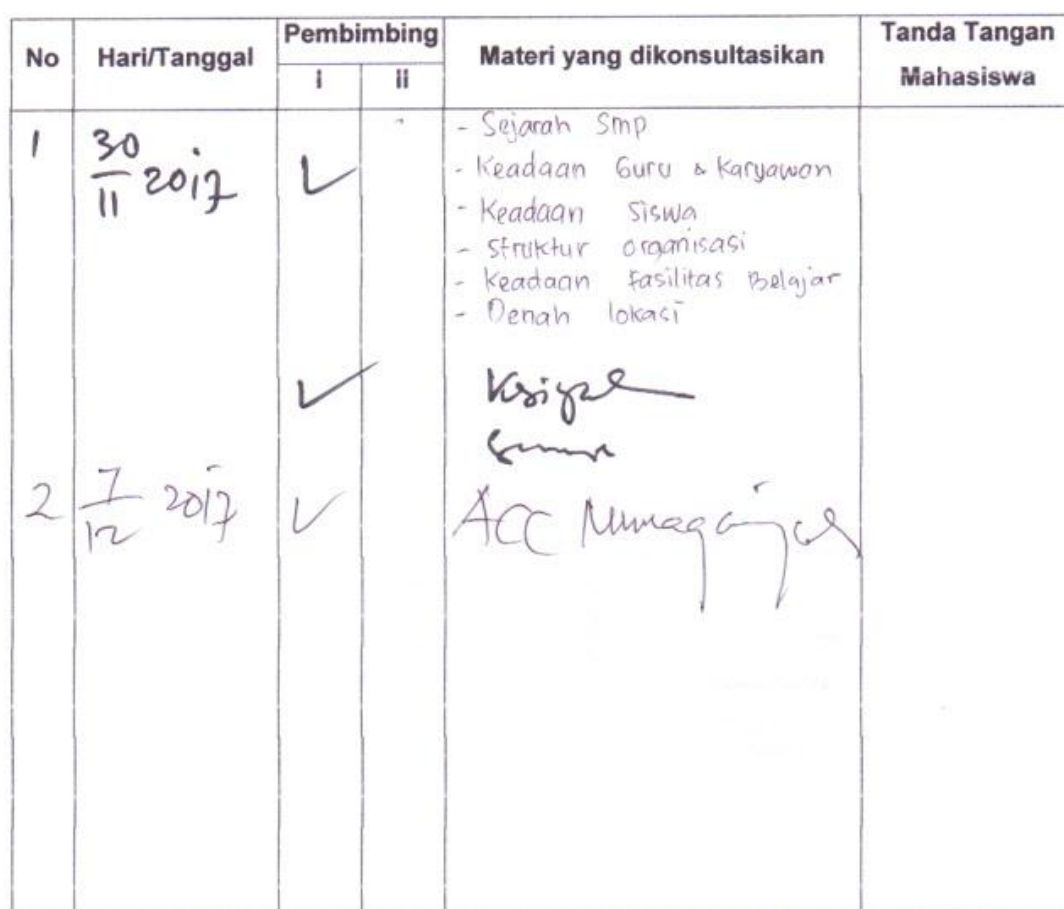 No Hari/Tanggal Pembimbing Materi yang dikonsultasikan Tanda Tangan Mahasiswa
i ii
1 30/11 2017 ✓
- Sejarah Smp
- Keadaan Guru & Karyawan
- Keadaan Siswa
- Struktur organisasi
- Keadaan fasilitas Belajar
- Denah lokasi
✓
2 7/12 2017 ✓ ACC